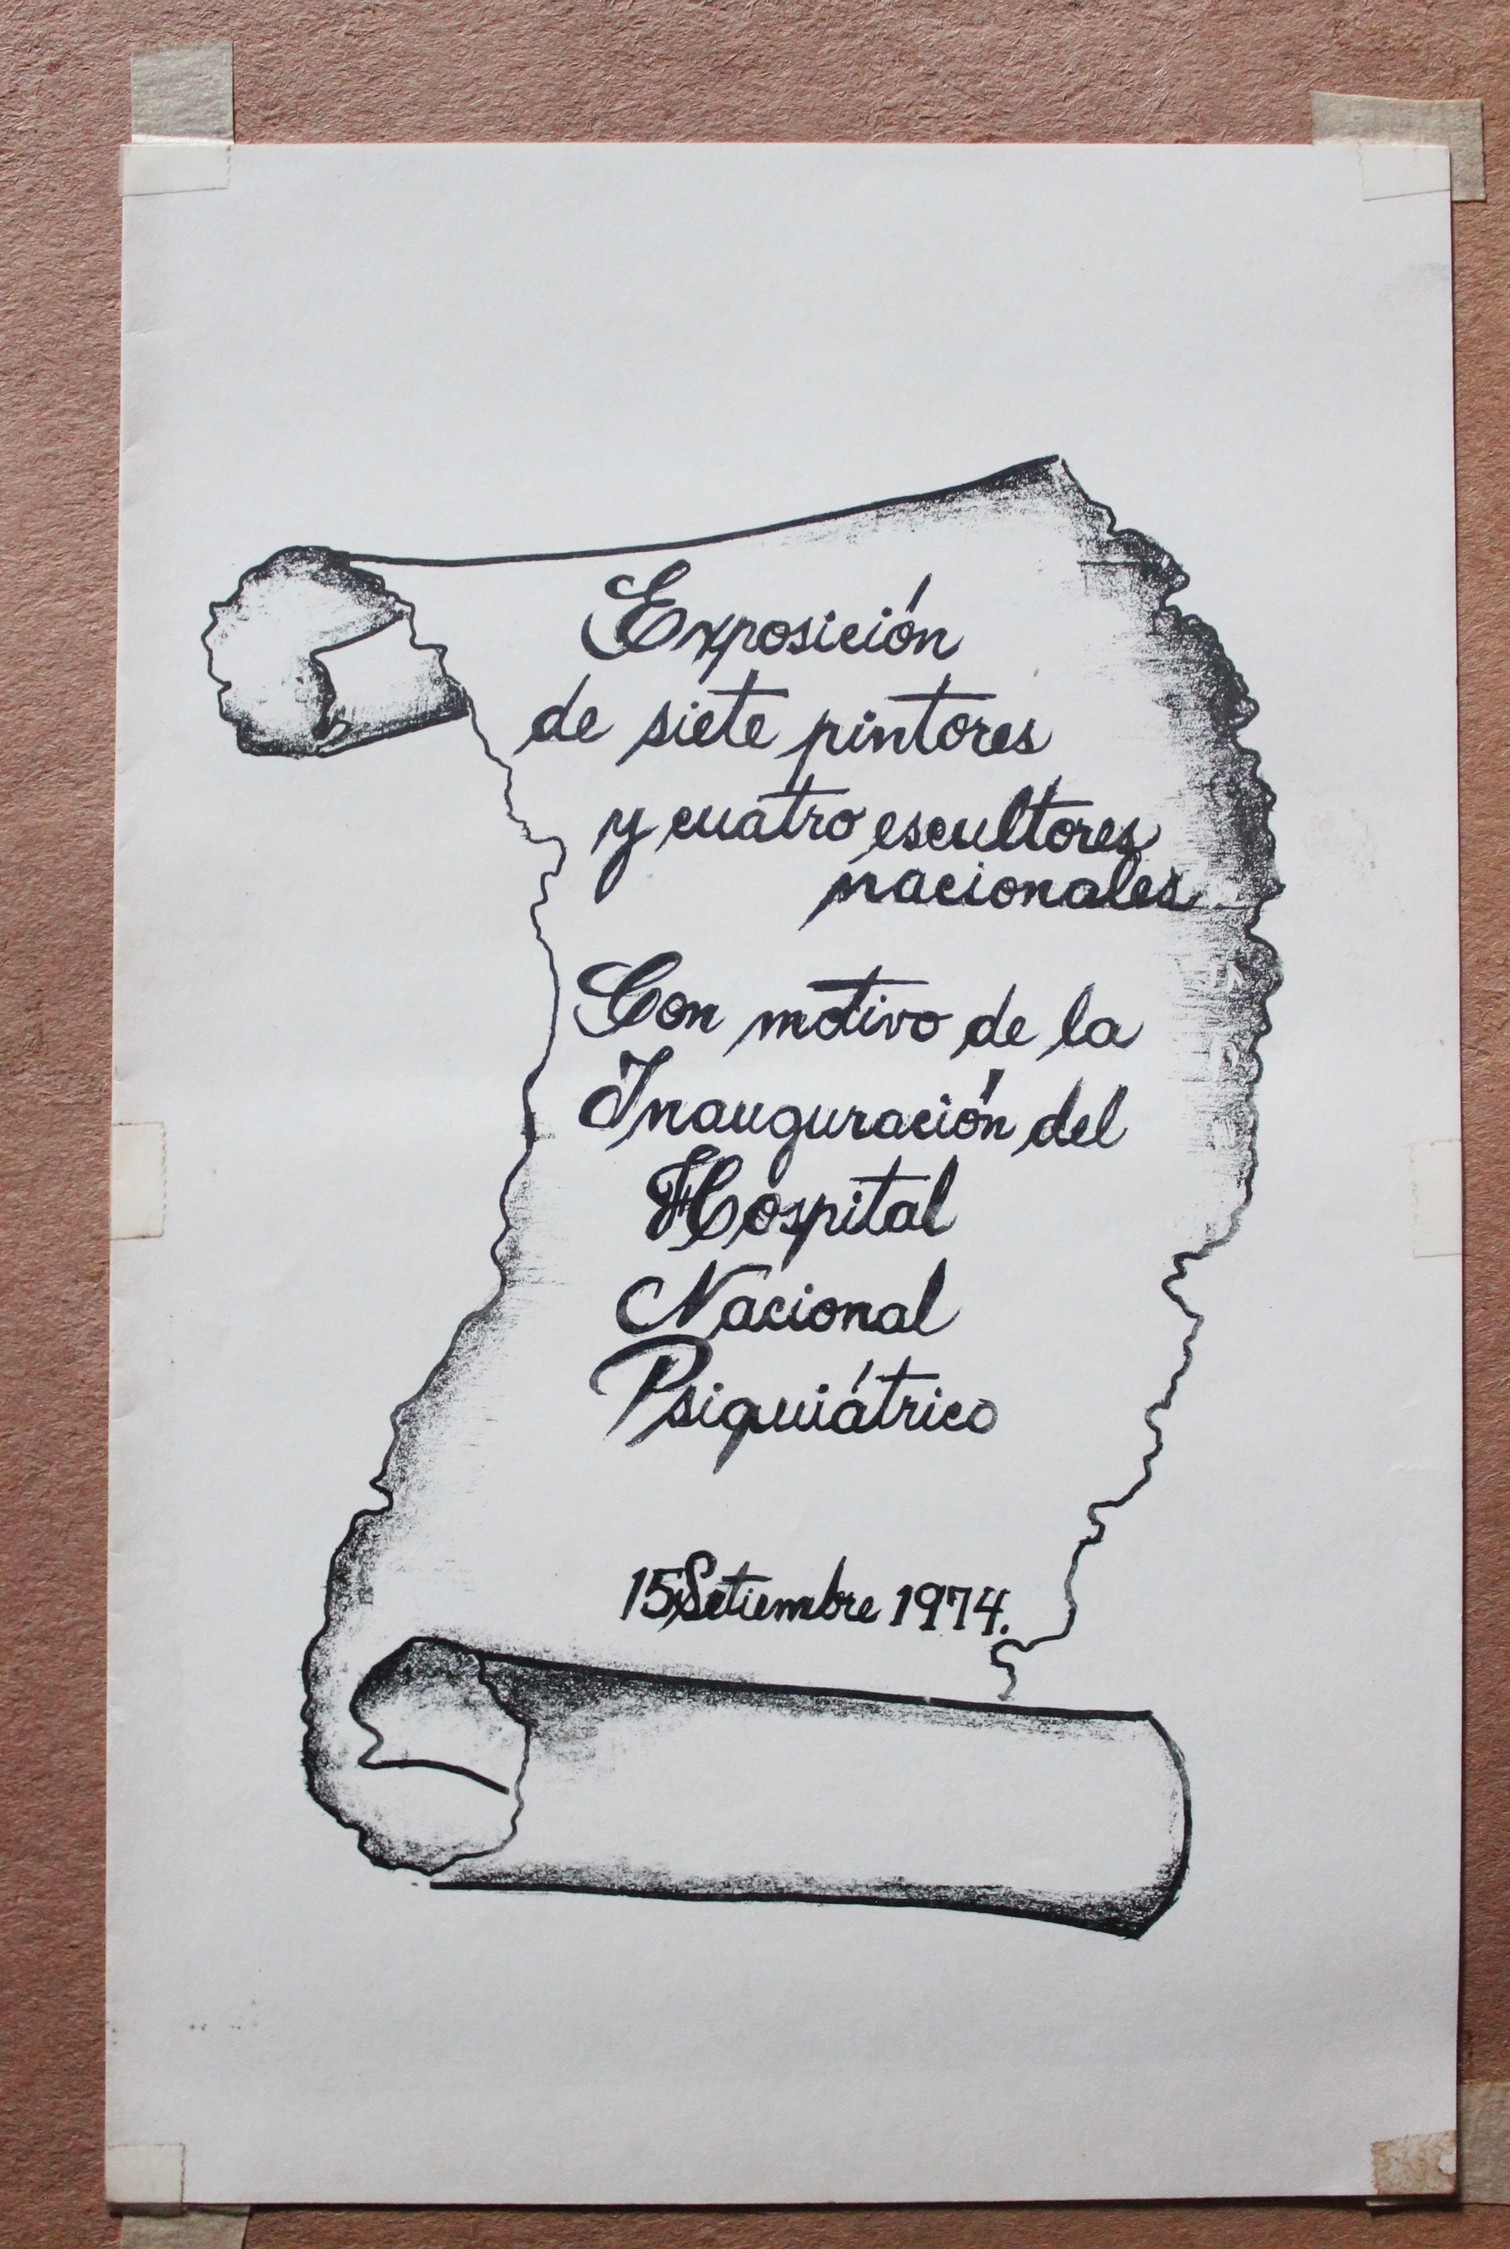 Exposición
de siete pintores
y cuatro escultores
nacionales
Con motivo de la
Inauguración del
Hospital
Nacional
Psiquiátrico
15 Setiembre 1974.